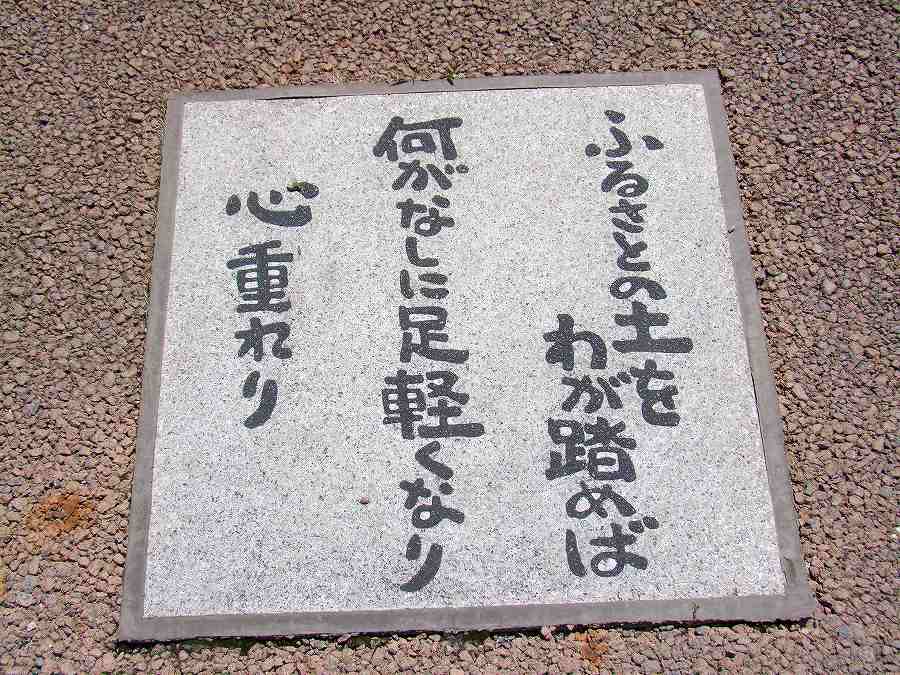 ふるさとの土を
わが踏めば
何がなしに足軽くなり
心重れり